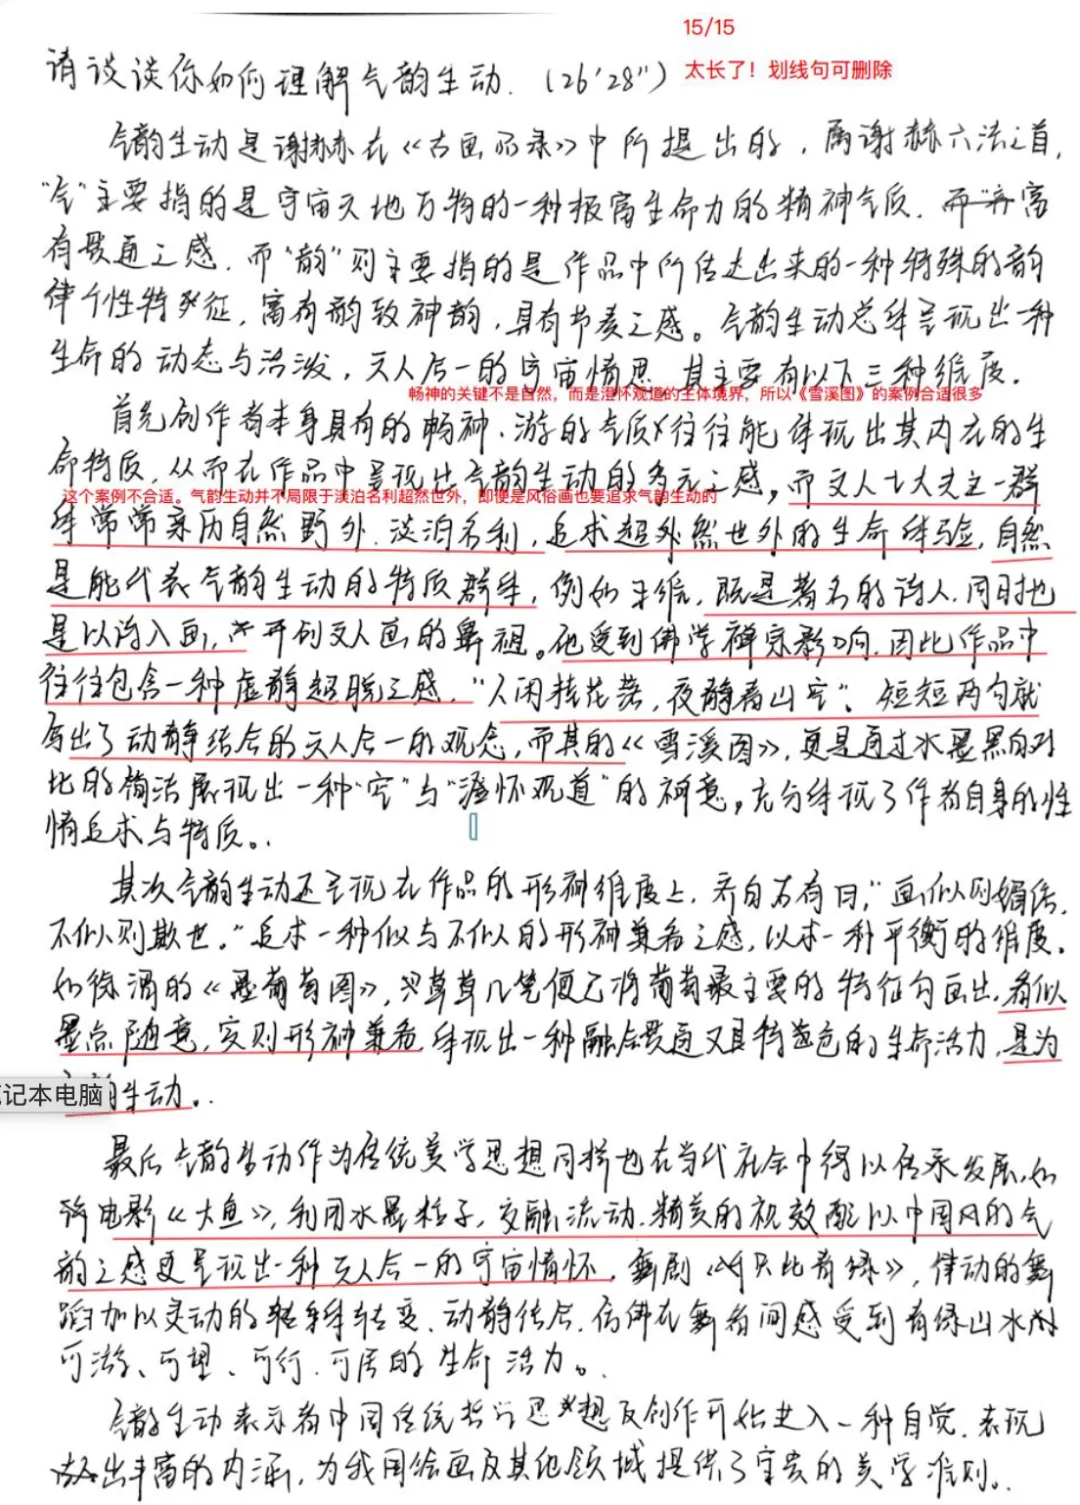 15/15
请谈谈你如何理解气韵生动.（26'28"）
太长了！划线句可删除
气韵生动是谢赫在《古画品录》中所提出的，属谢赫六法之首，
"气"主要指的是宇宙天地万物的一种极富生命力的精神气质，而富
有贯通之感，而"韵"则主要指的是作品中所传达出来的一种特殊的韵
律个性特征，富有韵致神韵，具有节奏之感。气韵生动总体呈现出一种
生命的动态与活泼，天人合一的宇宙情思，其主要有以下三种维度。
畅神的关键不是自然，而是澄怀观道的主体境界，所以《雪溪图》的案例合适很多
首先创作者本身具有的畅神、游的气质往往能体现出其内在的生
命特质，从而在作品中呈现出气韵生动的多元之感，而文人士大夫之一群
这个案例不合适。气韵生动并不局限于淡泊名利超然世外，即便是风俗画也要追求气韵生动的
体常常亲历自然野外，淡泊名利，追求超然世外的生命体验，自然
是能代表气韵生动的特质群体，例如王维，既是著名的诗人，同时也
是以诗入画，开创文人画的鼻祖。他受到佛学禅宗影响，因此作品中
往往包含一种虚静超脱之感，"人闲桂花落，夜静春山空"，短短两句就
写出了动静结合的天人合一的观念，而其的《雪溪图》，更是通过水墨黑白对
比的简洁展现出一种"空"与"澄怀观道"的禅意，充分体现了作者自身的性
情追求与特质。
其次气韵生动还呈现在作品的形神维度上，齐白石有曰，"画似则媚俗，
不似则欺世。"追求一种似与不似的形神兼备之感，以求一种平衡的维度。
如徐渭的《墨葡萄图》，只草草几笔便已将葡萄最主要的特征勾画出，看似
墨点随意，实则形神兼备，体现出一种融会贯通又具特色的生命活力，是为
气韵生动。
笔记本电脑
最后气韵生动作为传统美学思想同样也在当代社会中得以传承发展，如
电影《大鱼》，利用水墨粒子，交融流动，精美的视效配以中国风的气
韵之感更呈现出一种天人合一的宇宙情怀，舞剧《只此青绿》，律动的舞
蹈加以灵动的转变、动静结合，仿佛在舞者间感受到青绿山水的
可游、可望、可行、可居的生命活力。
气韵生动表示着中国传统哲学思想及创作开始进入一种自觉，表现
出丰富的内涵，为我国绘画及其他领域提供了宝贵的美学准则。